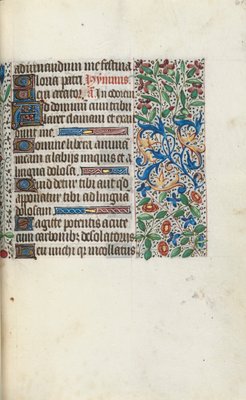 ad iuuandum me festina
Gloria patri Hymnus
ad dominum cum tribu
larer clamaui et exau
diuit me
Domine libera anima
meam a labijs iniquis et a
lingua dolosa
Quid detur tibi aut qd
apponatur tibi ad lingua
dolosam
Sagitte potentis acute
cum carbonibus desolatorijs
Heu michi qr incolatus